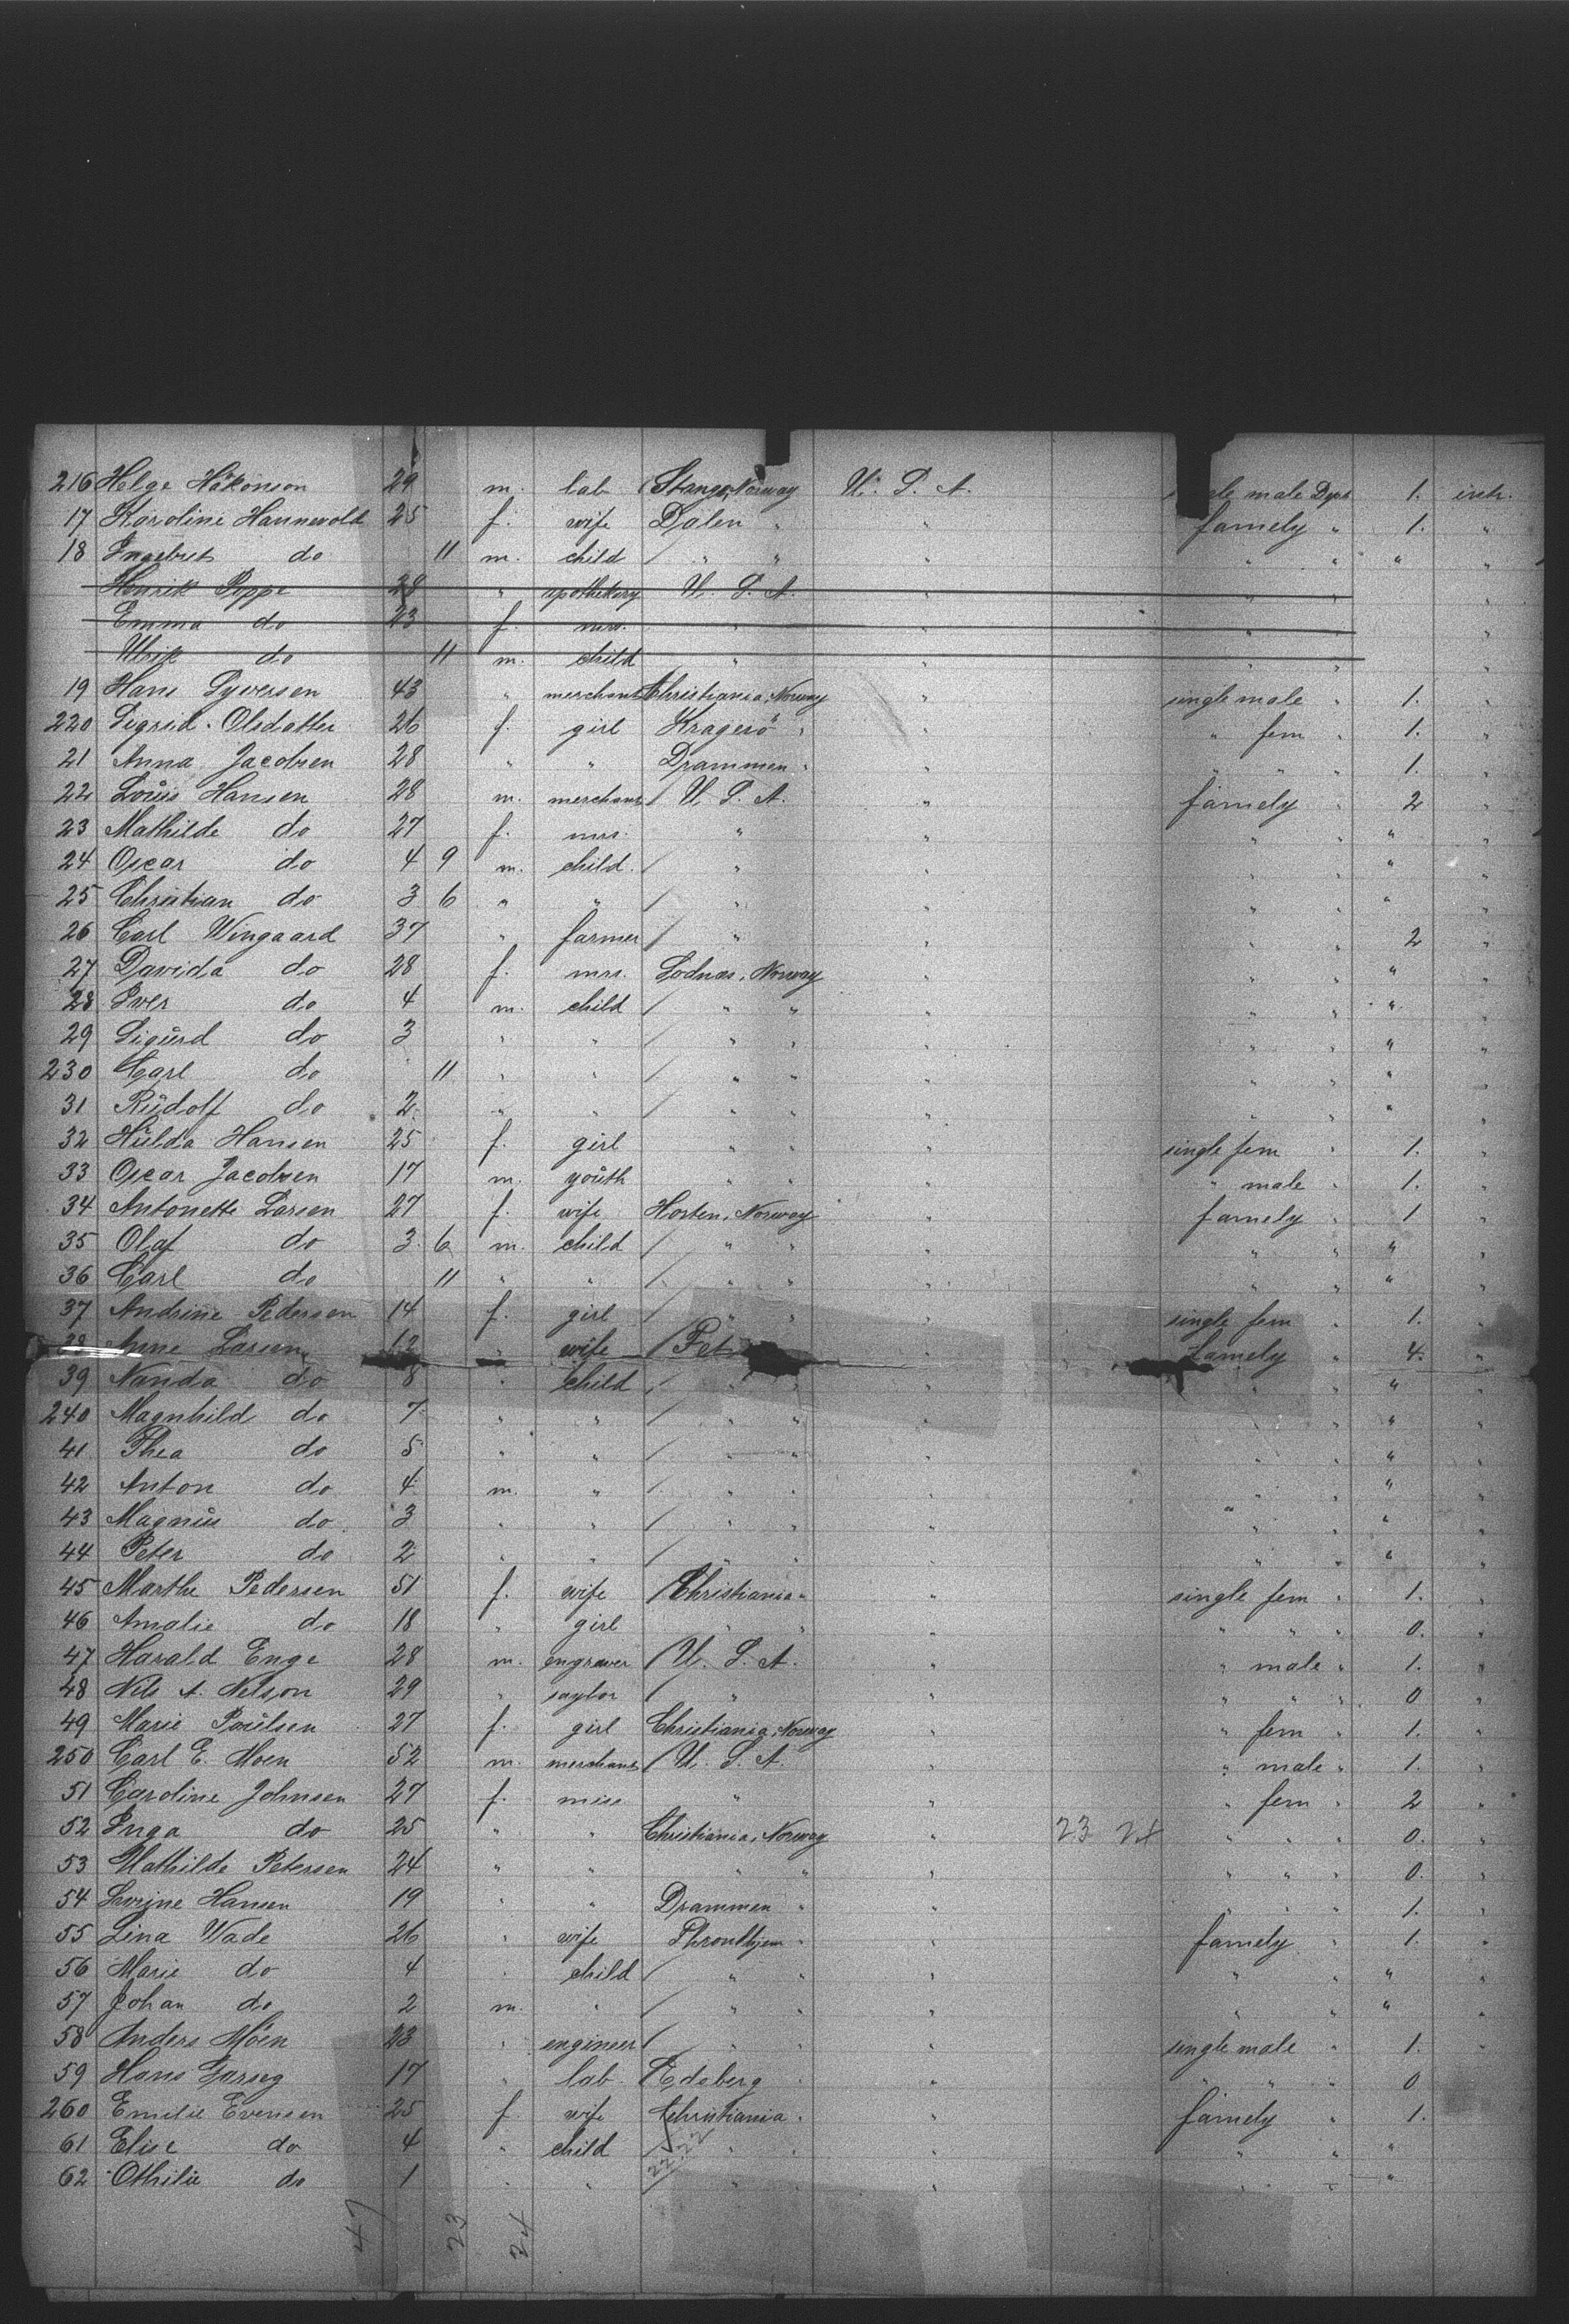 216 Helge Håkonson 29 m. lab Stange, Norway U. S. A. male Dprt 1. inch.
17 Karoline Hannevold 25 f. wife Dalen " " famely " 1. "
18 Ingebret do 11 m. child / " " " " " " "
Henrik Poppe 28 " apothekary U. S. A. " " " "
Emma do 23 f. mrs. " " " " "
Ulrik do 11 m. child " " " " "
19 Hans Syversen 43 " merchant Christiania, Norway " single male " 1. "
220 Sigrid Olsdatter 26 f. girl Kragerö " " " fem " 1. "
21 Anna Jacobsen 28 " " Drammen " " " " " 1. "
22 Louis Hansen 28 m. merchant / U. S. A. " famely " 2 "
23 Mathilde do 27 f. mrs. " " " " " "
24 Oscar do 4 9 m. child. / " " " " " "
25 Christian do 3 6 " " / " " " " " "
26 Carl Wingaard 37 " farmer / " " " " 2 "
27 Davida do 28 f. mrs. Norway " " " " "
28 Iver do 4 m. child / " " " " " " "
29 Sigurd do 3 " " / " " " " " " "
230 Carl do 11 " " / " " " " " " "
31 Rudolf do 2 " " / " " " " " " "
32 Hulda Hansen 25 f. girl " " " single fem " 1. "
33 Oscar Jacobsen 17 m. youth " " " " male " 1. "
34 Antonette Larsen 27 f. wife Horten, Norway " famely " 1 "
35 Olaf do 3 6 m. child / " " " " " " "
36 Carl do 11 " " / " " " " " " "
37 Andrine Pedersen 14 f. girl / " " " single fem " 1. "
38 Anne Larsen " wife / " famely " 4. "
39 Nanda do 8 " child / " " " " " " "
240 Magnhild do 7 " " / " " " " " " "
41 Thea do 5 " " / " " " " " " "
42 Anton do 4 m. " / " " " " " " "
43 Magnus do 3 " " / " " " " " " "
44 Peter do 2 " " / " " " " " " "
45 Marthe Pedersen 51 f. wife / Christiania " " single fem " 1. "
46 Amalie do 18 " girl " " " " " " 0. "
47 Harald Enge 28 m. engraver / U. S. A. " " male " 1. "
48 Nils A. Nelson 29 " saylor / " " " " " 0 "
49 Marie Paulsen 27 f. girl Christiania, Norway " " fem " 1. "
250 Carl E. Moen 52 m. merchant / U. S. A. " " male " 1. "
51 Caroline Johnsen 27 f. miss " " " fem " 2 "
52 Inga do 25 " " Christiania, Norway " 23 24 " " " 0. "
53 Mathilde Petersen 24 " " " " " " " " 0. "
54 Hansen 19 " " Drammen " " " " " 1. "
55 Lina Wade 26 " wife Throndhjem " " famely " 1. "
56 Marie do 4 " child / " " " " " " "
57 Johan do 2 m. " / " " " " " " "
58 Anders Möen 23 " engineer / " " " single male " 1. "
59 Hans 17 " lab. Edsberg " " " " " 0 "
260 Emilie Evensen 25 f. wife Christiania " " famely " 1. "
61 Elise do 4 " child / " " " " " "
62 Othilie do 1 " " / " " " " " "
22 22
47 23 24